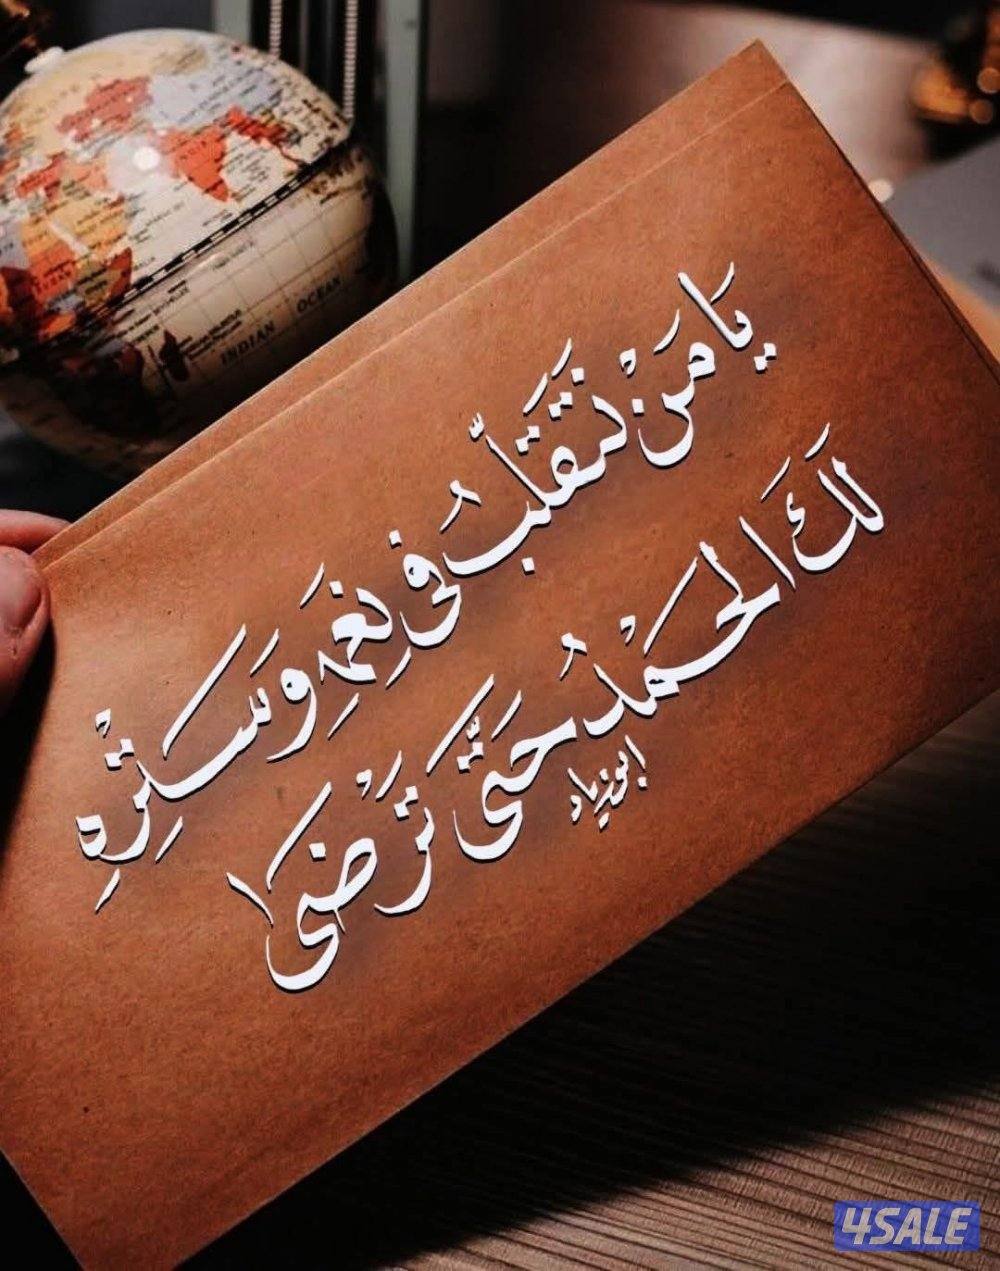 يَا مَنْ نَتَقَلَّبُ فِي نِعَمِهِ وَسَتْرِهِ
لَكَ الحَمْدُ حَتَّى تَرْضَى
INDIAN OCEAN
4SALE